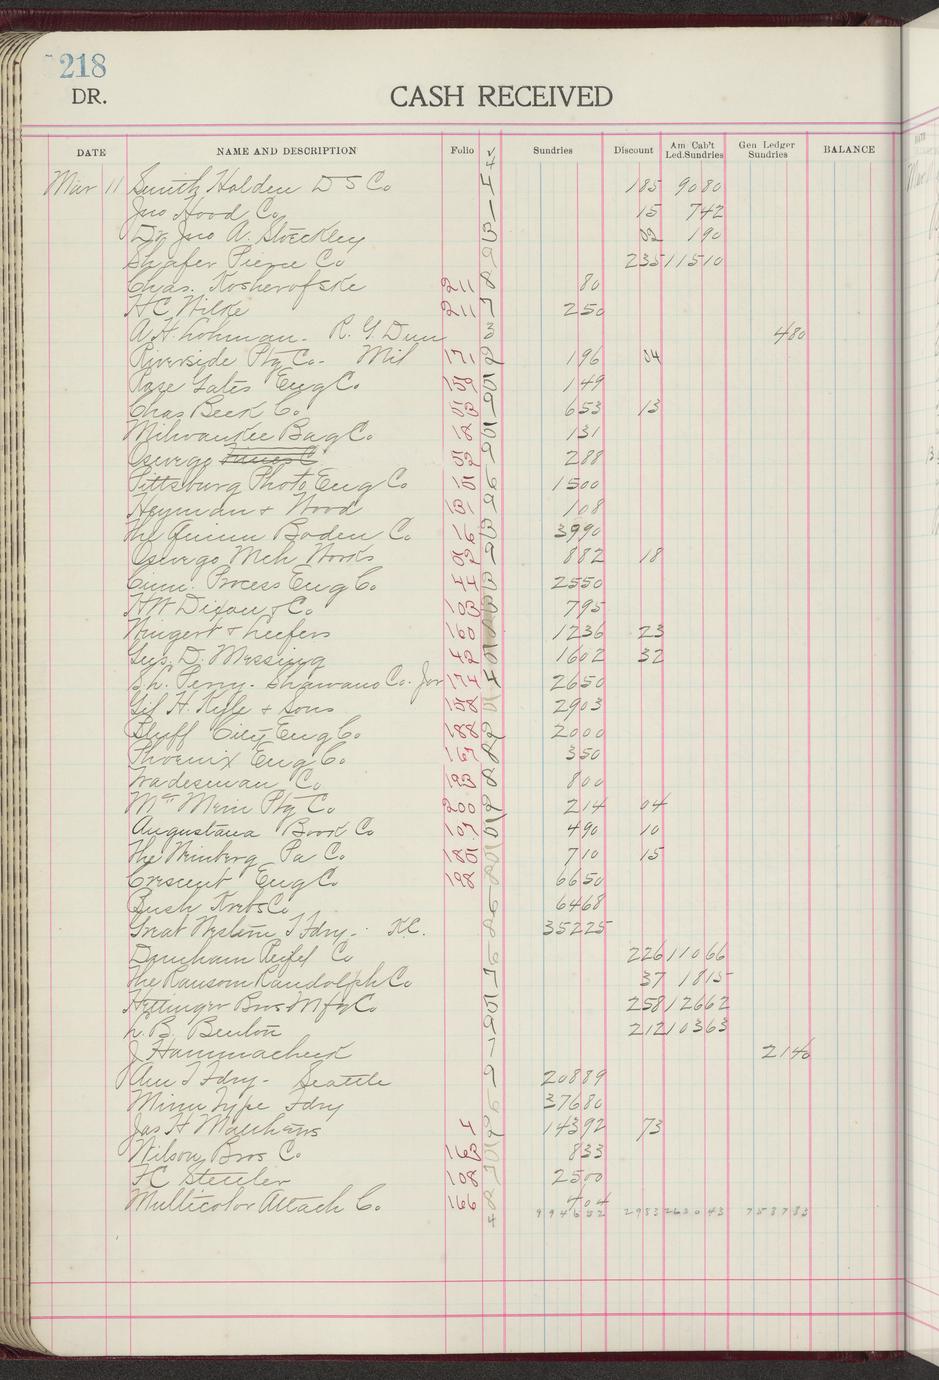 218
DR. CASH RECEIVED
DATE NAME AND DESCRIPTION Folio Sundries Discount Am Cab't Led. Sundries Gen Ledger Sundries BALANCE
Mar 11 Smith Holden D S Co 4 185 9080
Jno Hood Co 1 15 742
Dr Jno A. Stoeckley 3 02 190
Shafer Pierce Co 9 235 11510
Chas. Kosherofske 211 8 80
H C Wilke 211 7 250
A. H. Lohman - R. G. Dun 3 480
Riverside Ptg Co - Mil 171 2 196 04
Race Gates Eng Co 159 149
Chas Beck Co 53 9 653 13
Milwaukee Bag Co 18 131
Oswego 52 9 288
Pittsburg Photo Eng Co 15 6 1500
Heyman & Wood 131 9 108
The Quinn Boden Co 16 3 3990
Oswego Mch Works 52 9 882 18
Cinn. Process Eng Co 44 3 2550
H W Dixon & Co 103 795
Wingert & Luefers 160 1236 23
Geo. D. Messing 42 1602 32
Sh. Perry - Shawano Co. Jor 174 4 2650
H. Kiffe & Sons 158 2903
Bluff City Eng Co 188 2 2000
Phoenix Eng Co 167 8 350
Tradesman Co 193 8 800
Mem Ptg Co 200 2 214 04
Augustana Book Co 107 490 10
The Weinberg Pa Co 185 710 15
Crescent Eng Co 198 6650
Bush Krebs Co 6 6468
Great Western T Fdry - K.C. 8 35225
Durnham Reifel Co 6 226 11066
The Ransom Randolph Co 7 37 1815
Hettinger Bros Mfg Co 5 258 12662
L. B. Benton 9 212 10363
J Hammacheck 7 2140
Am T Fdry - Seattle 9 20889
Minn Type Fdry 6 37680
Jas H Matthews 4 2 14392 73
Wilson Bros Co 163 833
F C Steuler 108 7 2500
Multicolor Attach Co. 166 8 404
994652 2953 263043 758783